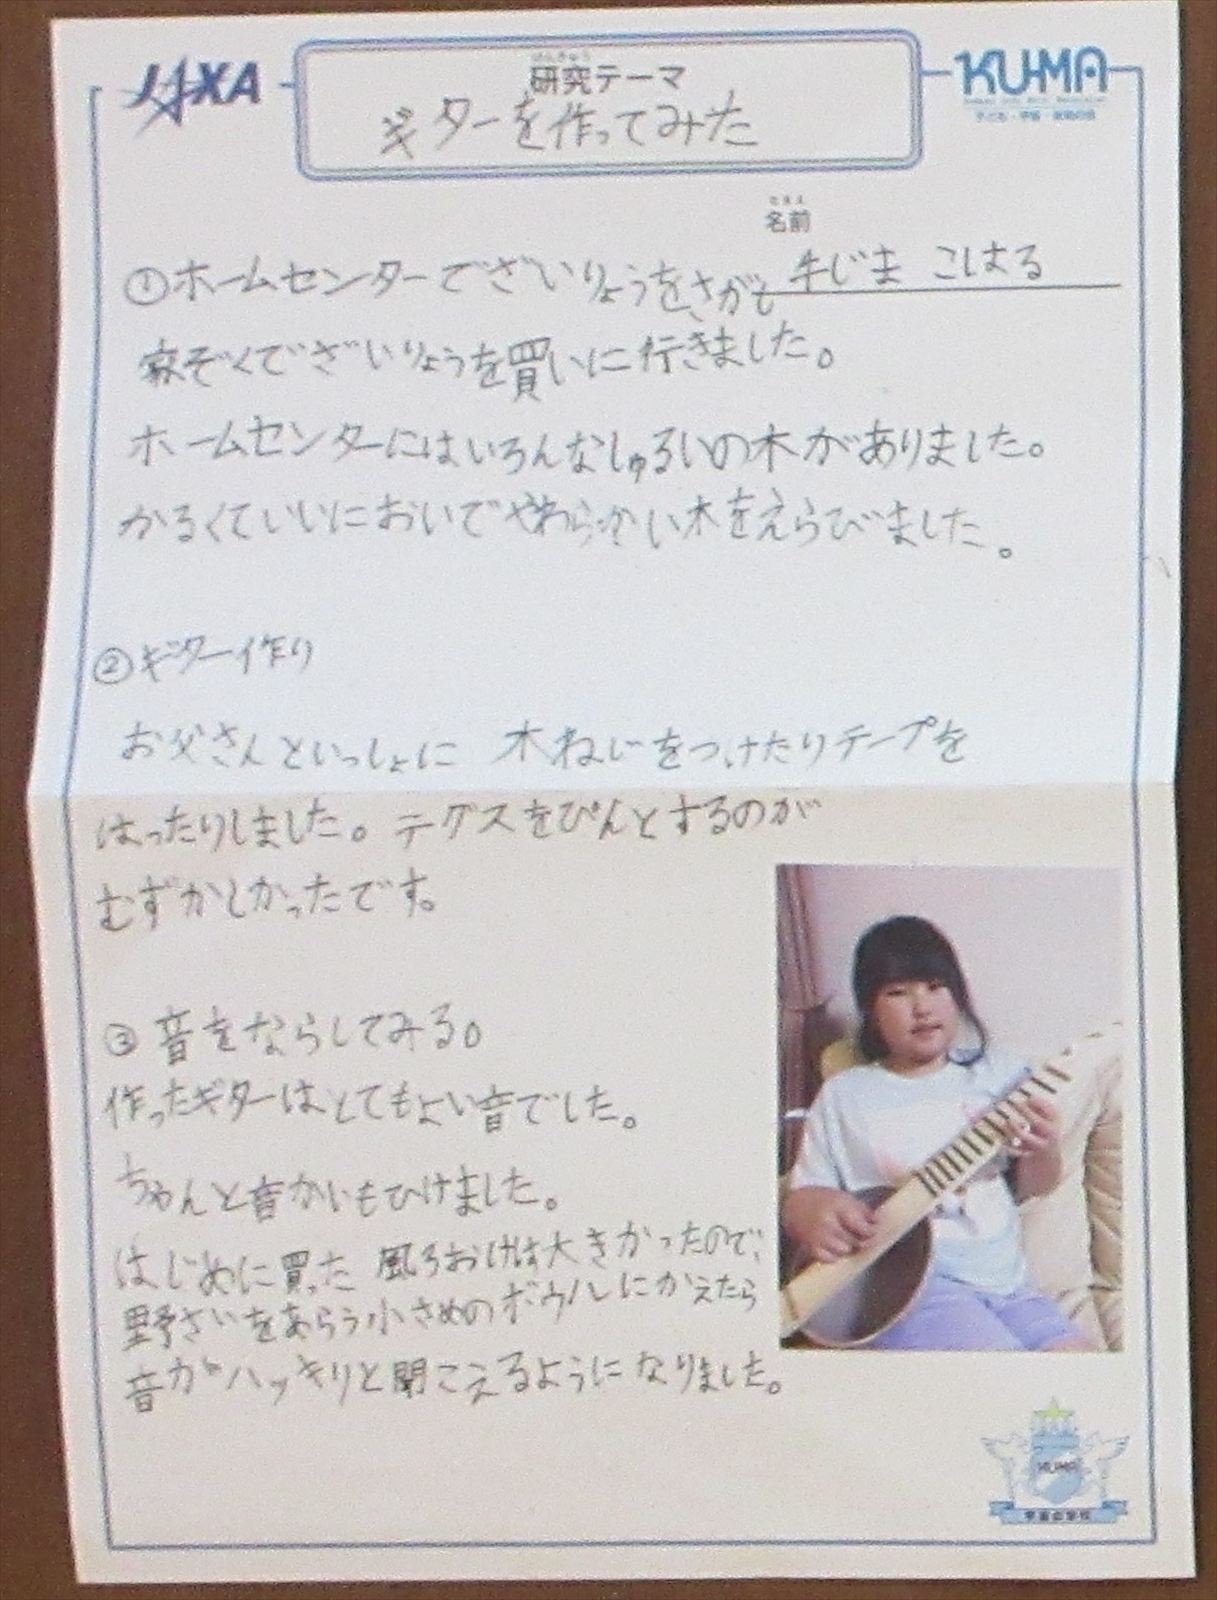 JAXA
けんきゅう
研究テーマ
KU-MA
子ども・宇宙・未来の会
ギターを作ってみた
なまえ
名前
牛じま こはる
①ホームセンターでざいりょうをさがす
家ぞくでざいりょうを買いに行きました。
ホームセンターにはいろんなしゅるいの木がありました。
かるくていいにおいでやわらかい木をえらびました。
②ギター作り
お父さんといっしょに 木ねじをつけたりテープを
はったりしました。テグスをぴんとするのが
むずかしかったです。
③ 音をならしてみる。
作ったギターはとてもよい音でした。
ちゃんと音かいもひけました。
はじめに買った 風ろおけは大きかったので、
野さいをあらう小さめのボウルにかえたら
音がハッキリと聞こえるようになりました。
KUMA
宇宙の学校